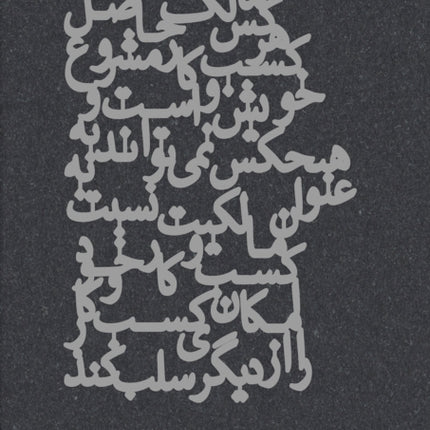 هرکس مالک حاصل
کسب و کار مشروع
خویش است و
هیچکس نمی تواند به
عنوان مالکیت نسبت به
کسب و کار خود
امکان کسب و کار
را از دیگری سلب کند